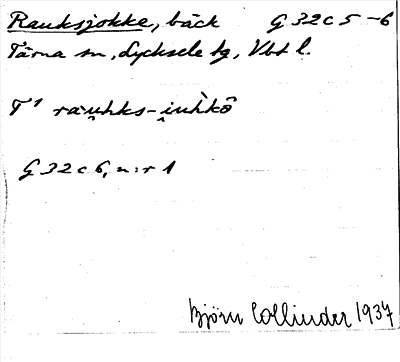 Rauksjokke, bäck G 32 c 5-6
Tärna sn, Lycksele lg, Vbt l.
T¹ ràu̯hks-i̯uh̀kô
G 32 c 6, n:r 1
Björn Collinder 1937